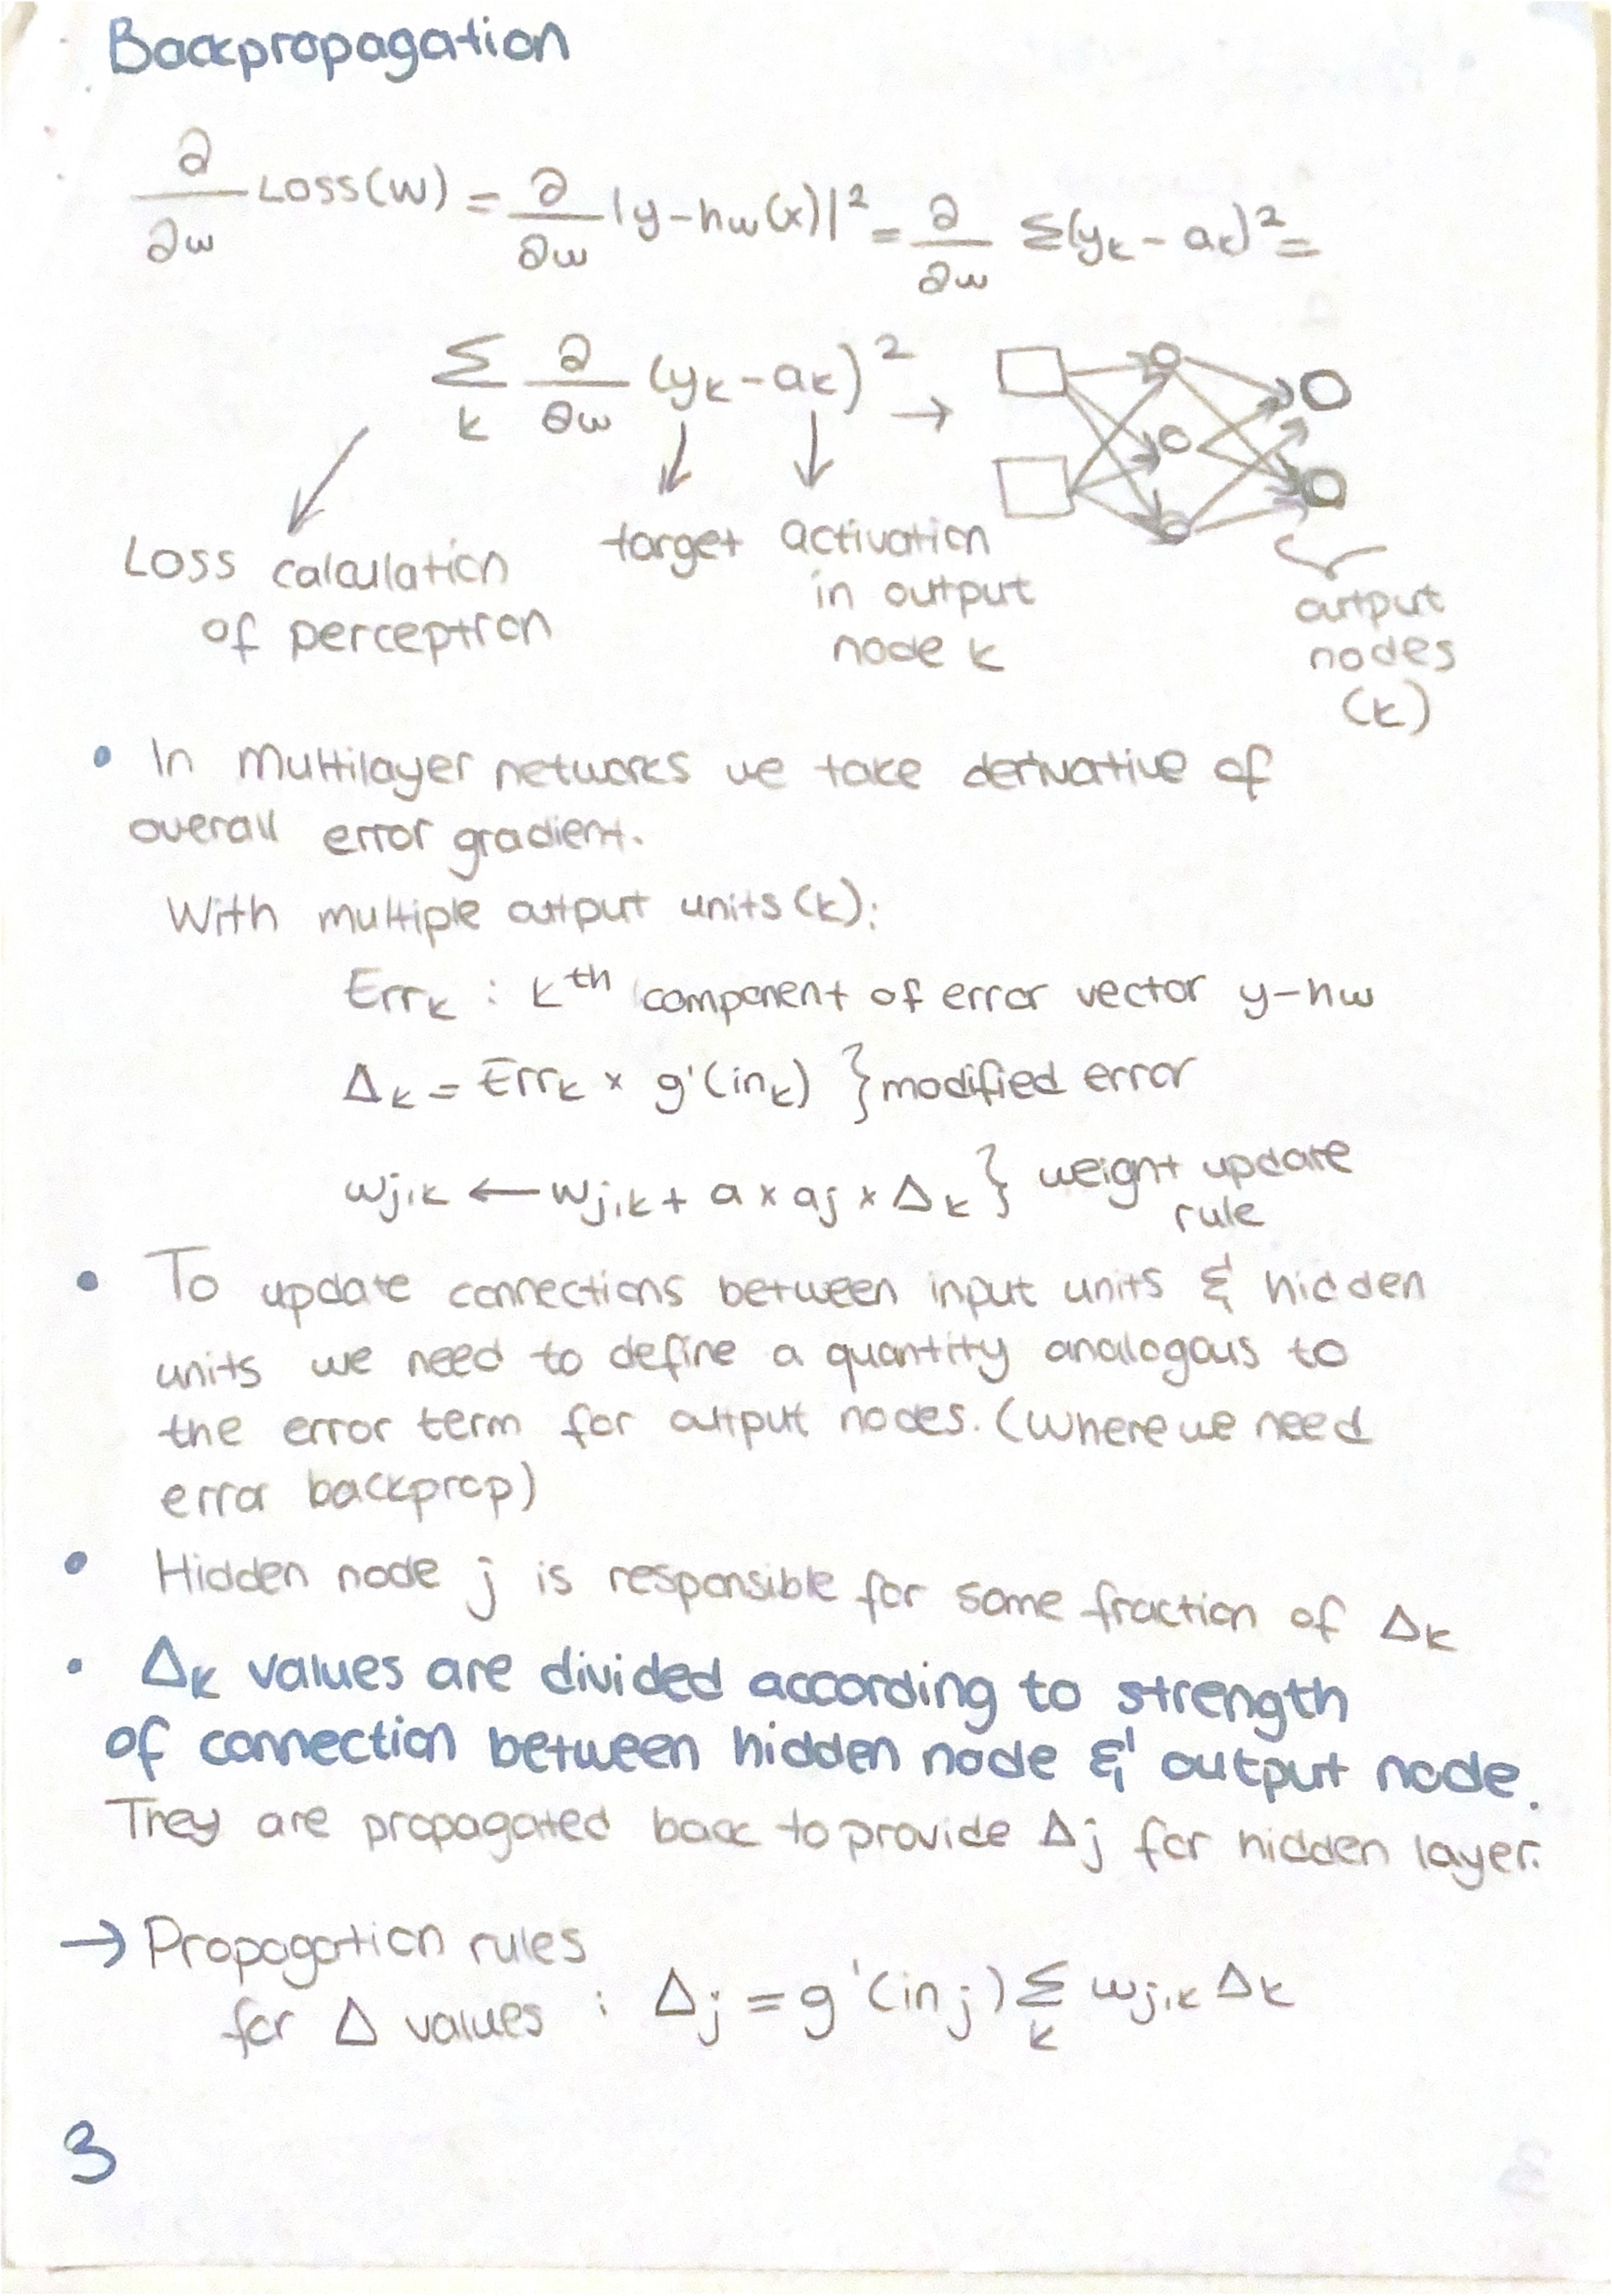 Backpropagation
∂/∂w Loss(w) = ∂/∂w |y-hw(x)|² = ∂/∂w Σ(yk - ak)² =
Σk ∂/∂w (yk-ak)² →
Loss calculation of perceptron
target
activation in output node k
output nodes (k)
• In multilayer networks we take derivative of
overall error gradient.
With multiple output units (k):
Errk : kth component of error vector y-hw
Δk = Errk × g'(ink) } modified error
wj,k ← wj,k + a × aj × Δk } weight update
rule
• To update connections between input units & hidden
units we need to define a quantity analogous to
the error term for output nodes. (Where we need
error backprop)
• Hidden node j is responsible for some fraction of Δk
• Δk values are divided according to strength
of connection between hidden node & output node.
They are propagated back to provide Δj for hidden layer.
→ Propagation rules
for Δ values : Δj = g'(inj) Σk wj,k Δk
3